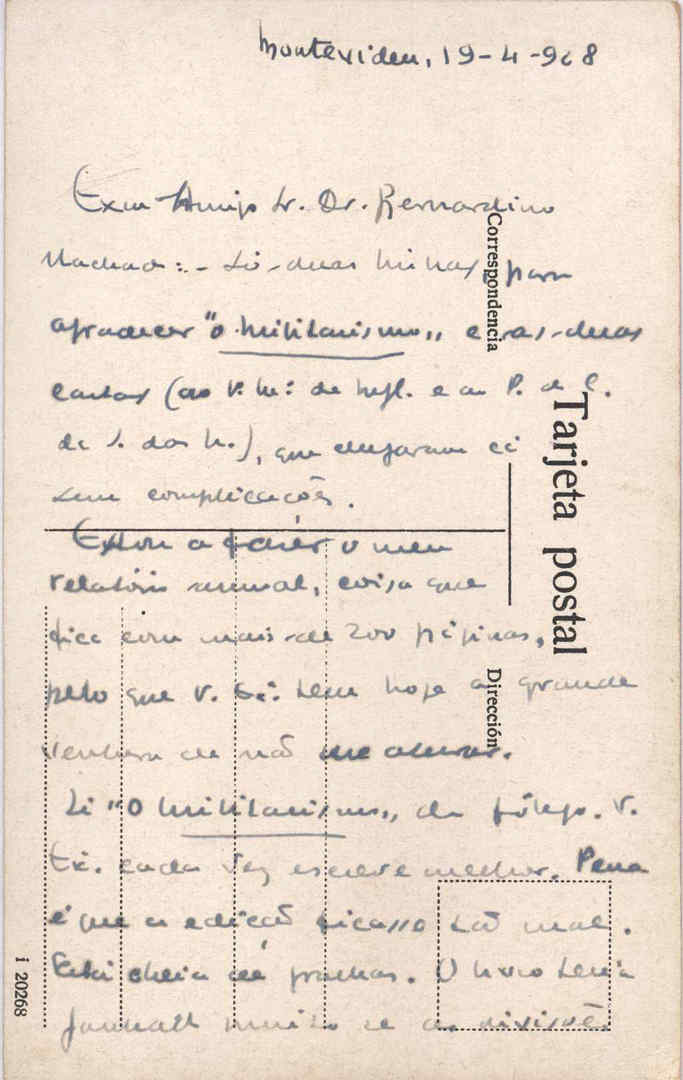 Montevideu, 19-4-928
Exmo Amigo Sr. Dr. Bernardino
Machado: - Só duas linhas, para
agradecer "O Militarismo" e as duas
cartas (ao V. M: de Infl. e ao P. do C.
de S. dos N.), que chegaram cá
sem complicações.
Estou a fazer o meu
relatório annual, coisa que
fica com mais de 200 páginas,
pelo que V. Ex: tem hoje a grande
ventura de não me aturar.
Li "O Militarismo" de fôlego. V.
Ex. cada vez escreve melhor. Pena
é que a edição ficasse tão mal.
Está cheia de gralhas. O livro teria
ganhado muito se as divisões
Correspondencia
Tarjeta postal
Dirección
i 20268